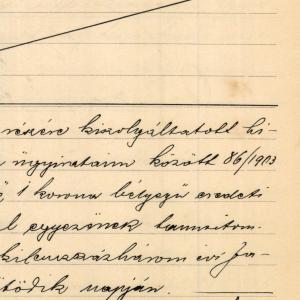 részére kiszolgáltatott hi-
ügyirataim között 86/1903
1 korona bélyegű eredeti
l egyezőnek tanusitom.
kilencszázhárom évi Ja-
ötödik napján.